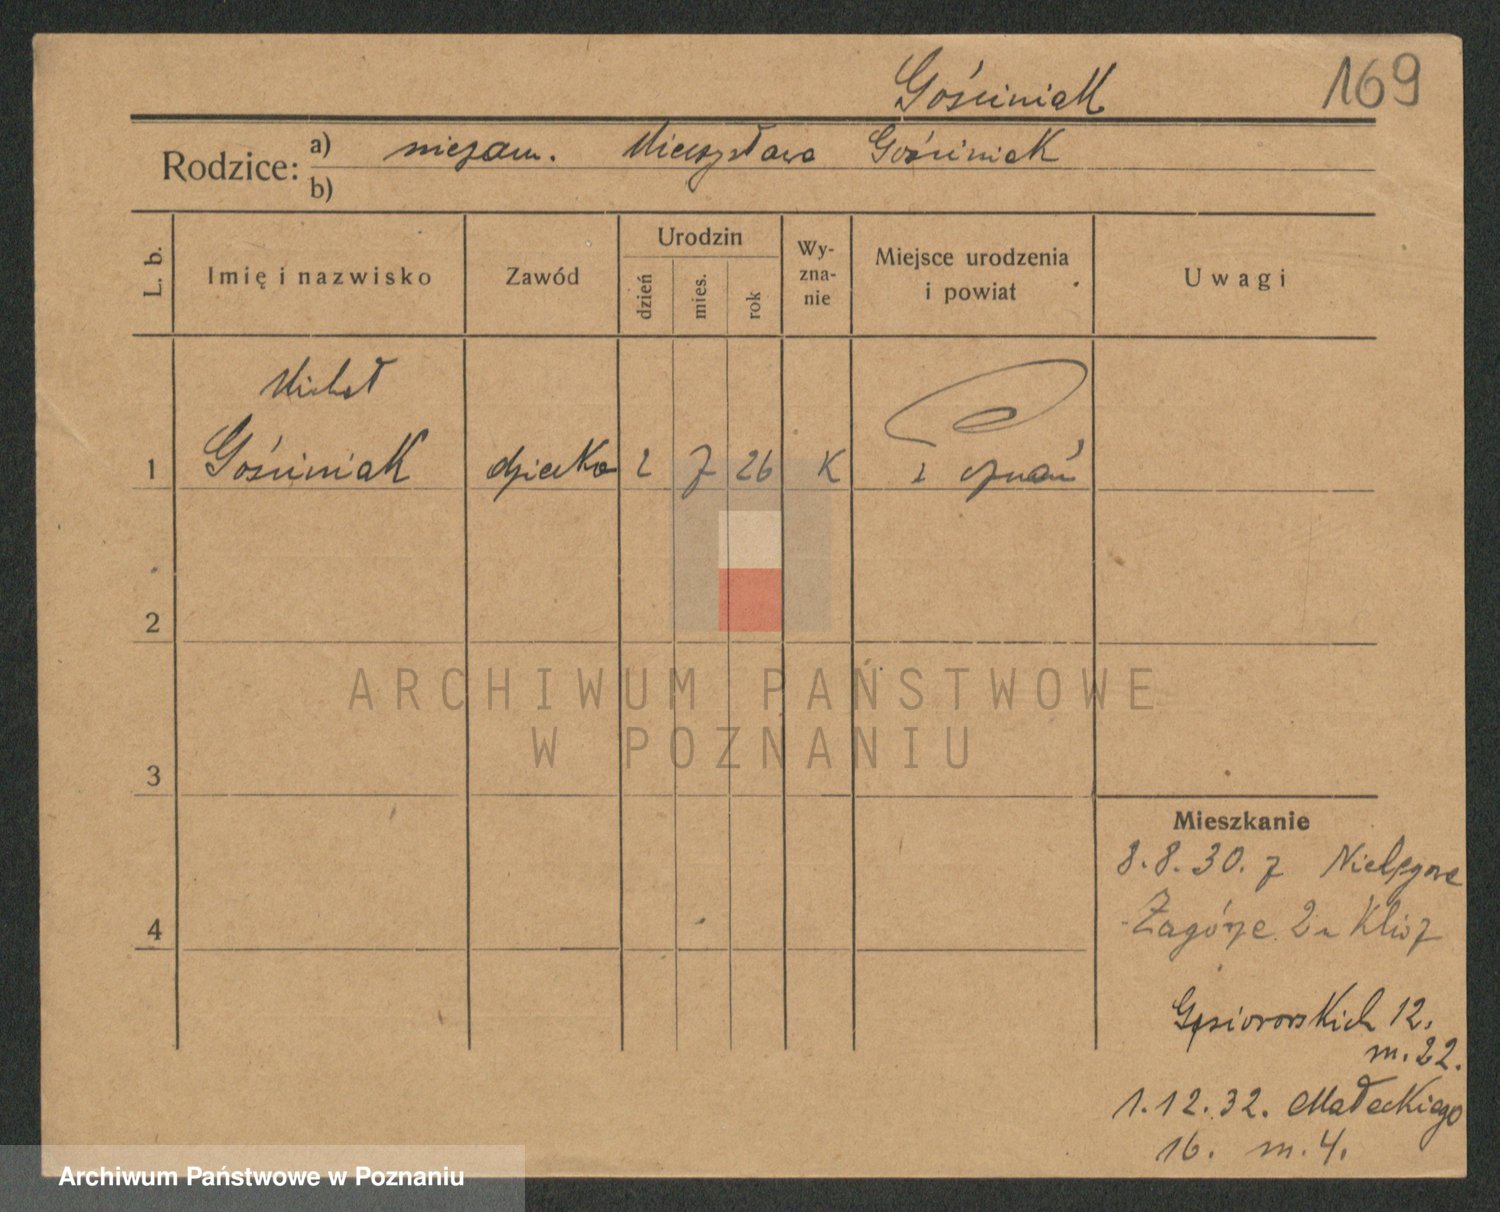 Gościniak 169
Rodzice: a) niezam. Mieczysława Gościniak
b)
L. b. Imię i nazwisko Zawód Urodzin dzień mies. rok Wy-zna-nie Miejsce urodzenia i powiat Uwagi
Michał
1 Gościniak dziecko 2 7 26 K Poznań
2
ARCHIWUM PAŃSTWOWE
W POZNANIU
3
Mieszkanie
8.8.30. z
Zagórze 2
4
Gąsiorowskich 12.
m. 22.
1.12.32. Małeckiego
16. m. 4.
Archiwum Państwowe w Poznaniu